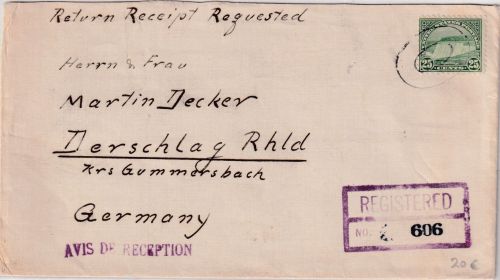 Return Receipt Requested
Herrn & Frau
Martin Decker
Derschlag Rhld
Krs Gummersbach
Germany
AVIS DE RECEPTION
REGISTERED
NO. 606
25 CENTS 25
206